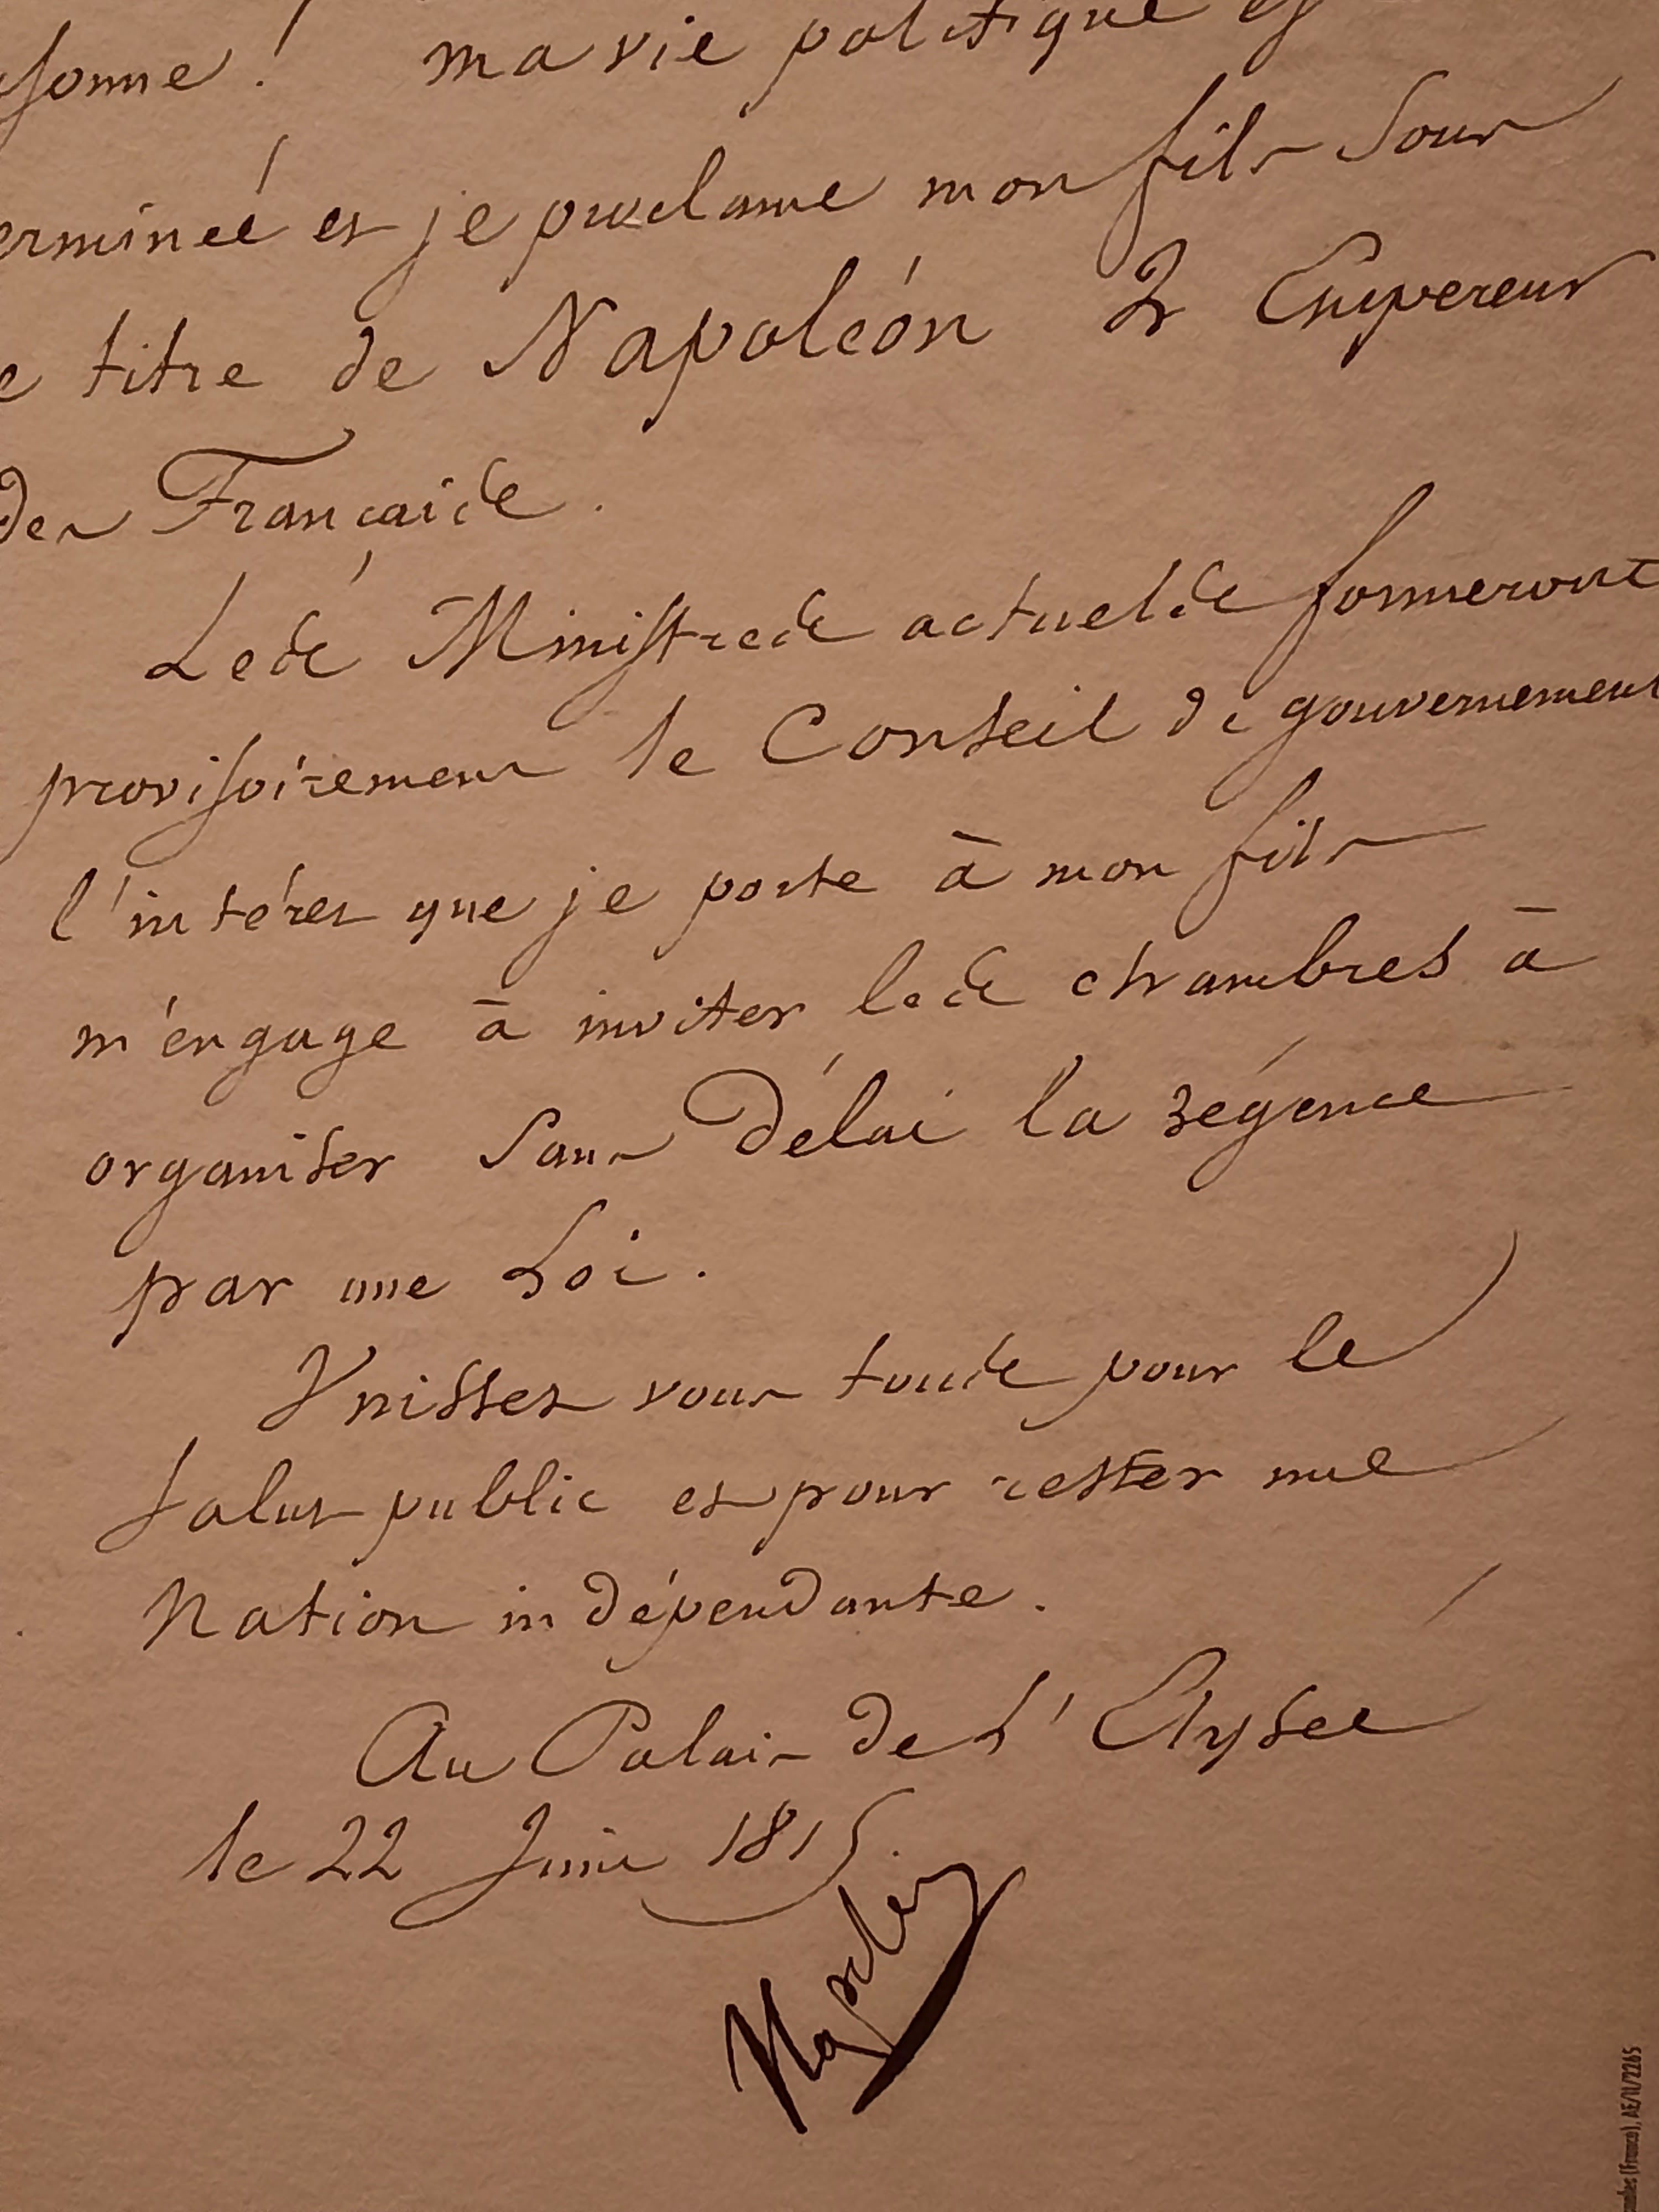 sonne! ma vie politique es
erminée et je proclame mon fils sous
e titre de Napoléon 2 Empereur
des Français.
Les Ministres actuels formeront
provisoirement le Conseil de gouvernement
l'intéret que je porte à mon fils
m'engage à inviter les chambres à
organiser sans délai la régence
par une Loi.
Unissez vous tous pour le
salut public et pour rester une
Nation indépendante.
Au Palais de L'Elysée
le 22 Juin 1815.
Napoleon
onales (France), AE/II/2265